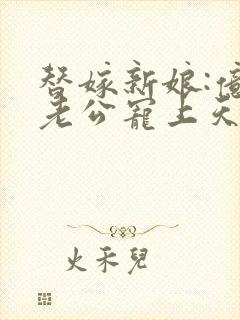 替嫁新娘:億
老公寵上天
火禾兒